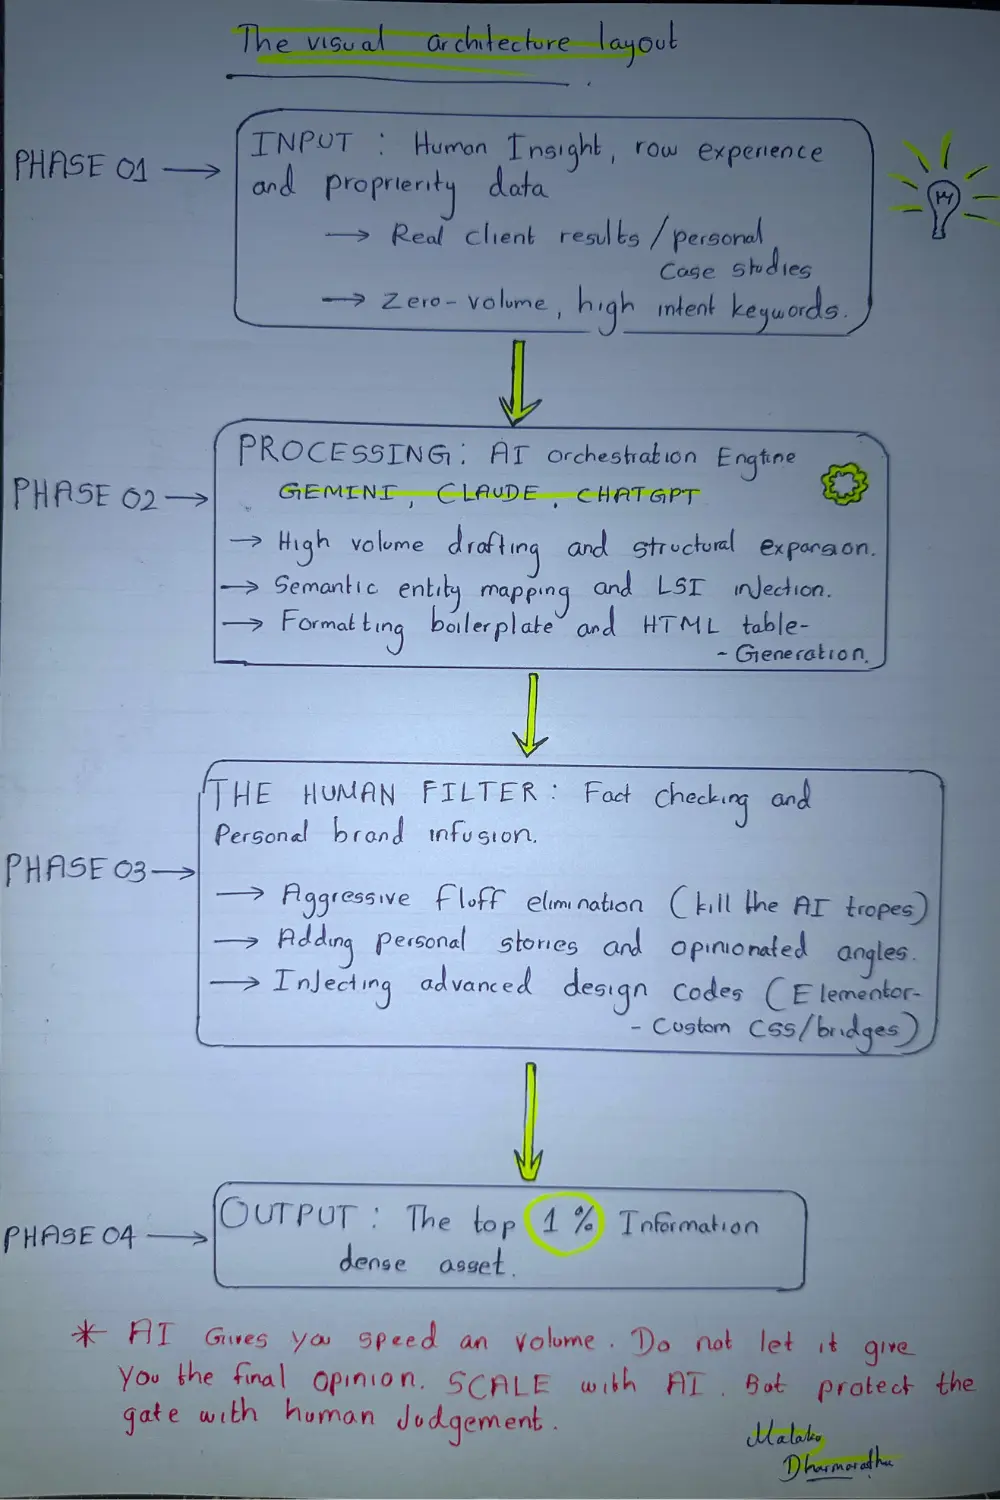 The visual architecture layout
PHASE 01
INPUT : Human Insight, row experience
and proprierity data
→ Real client results / personal
case studies
→ Zero-volume, high intent keywords.
PHASE 02
PROCESSING: AI orchestration Engine
GEMINI, CLAUDE, CHATGPT
→ High volume drafting and structural expansion.
→ Semantic entity mapping and LSI injection.
→ Formatting boilerplate and HTML table-
- Generation.
PHASE 03
THE HUMAN FILTER : Fact checking and
Personal brand infusion.
→ Aggressive fluff elimination (kill the AI tropes)
→ Adding personal stories and opinionated angles.
→ Injecting advanced design codes (Elementor-
- Custom CSS/bridges)
PHASE 04
OUTPUT : The top 1 % Information
dense asset.
* AI Gives you speed an volume. Do not let it give
you the final opinion. SCALE with AI. But protect the
gate with human Judgement.